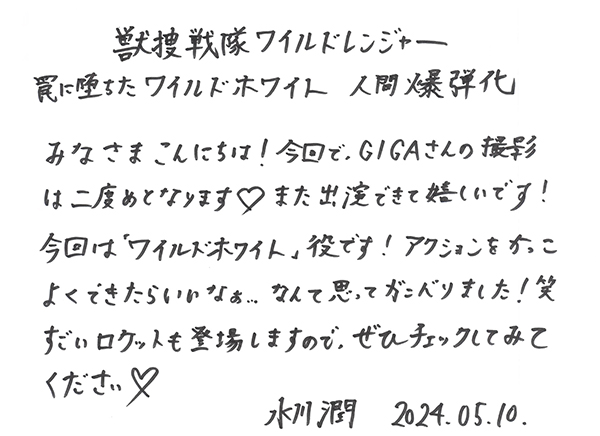 獣捜戦隊ワイルドレンジャー
罠に堕ちたワイルドホワイト 人間爆弾化
みなさまこんにちは！今回で、GIGAさんの撮影
は二度めとなります♡また出演できて嬉しいです！
今回は「ワイルドホワイト」役です！アクションをかっこ
よくできたらいいなぁ…なんて思ってガンバりました！笑
すごいロケットも登場しますので、ぜひチェックしてみて
ください♡
水川潤 2024.05.10.